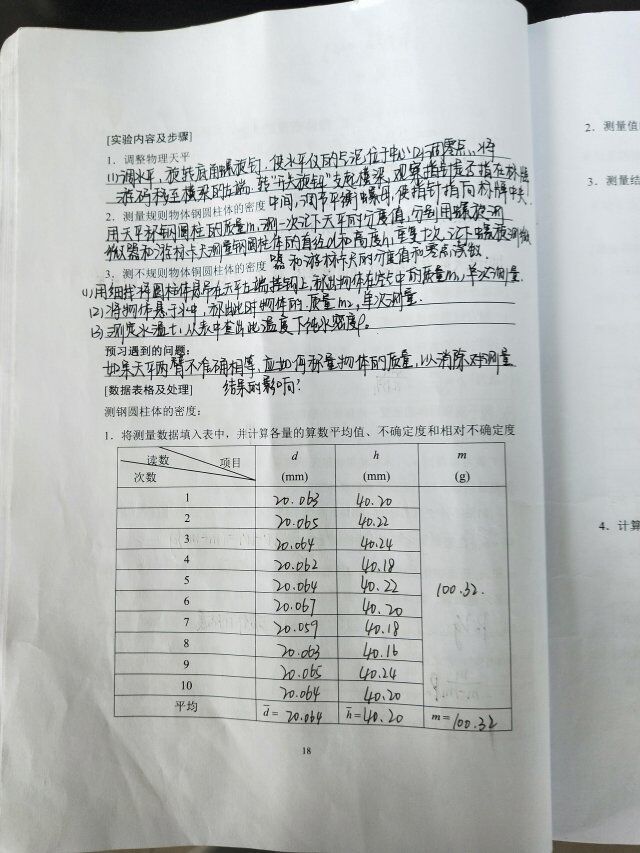 [实验内容及步骤]
1. 调整物理天平
(1)调水平,旋转底角螺旋钉,使水平仪的气泡位于中心(2)调零点,将
游码移至横梁的左端,转"开关旋钮"支起横梁,观察指针是否指在标牌
中间,调节平衡螺母,使指针指向标牌中央.
2. 测量规则物体钢圆柱体的密度
用天平称钢圆柱的质量m,测一次记下天平的分度值,分别用螺旋测
微器和游标卡尺测量钢圆柱体的直径d和高度h,重复十次,记下螺旋测微
器和游标卡尺的分度值和零点读数.
3. 测不规则物体铜圆柱体的密度
(1)用细线将圆柱体悬吊在天平左端挂钩上,称出物体在空气中的质量m,单次测量.
(2)将物体悬于水中,称出此时物体的质量m2,单次测量.
(3)测定水温t,从表中查出此温度下纯水密度ρ.
预习遇到的问题:
如果天平两臂不准确相等,应如何称量物体的质量,以消除对测量
结果的影响?
[数据表格及处理]
测钢圆柱体的密度:
1. 将测量数据填入表中,并计算各量的算数平均值、不确定度和相对不确定度
读数 项目 次数 d (mm) h (mm) m (g)
1 20.063 40.20
2 20.065 40.22
3 20.064 40.24
4 20.062 40.18
5 20.064 40.22 100.32.
6 20.067 40.20
7 20.059 40.18
8 20.063 40.16
9 20.065 40.24
10 20.064 40.20
平均 d̄= 20.064 h̄=40.20 m=100.32
18
2. 测量值
3. 测量结
4. 计算